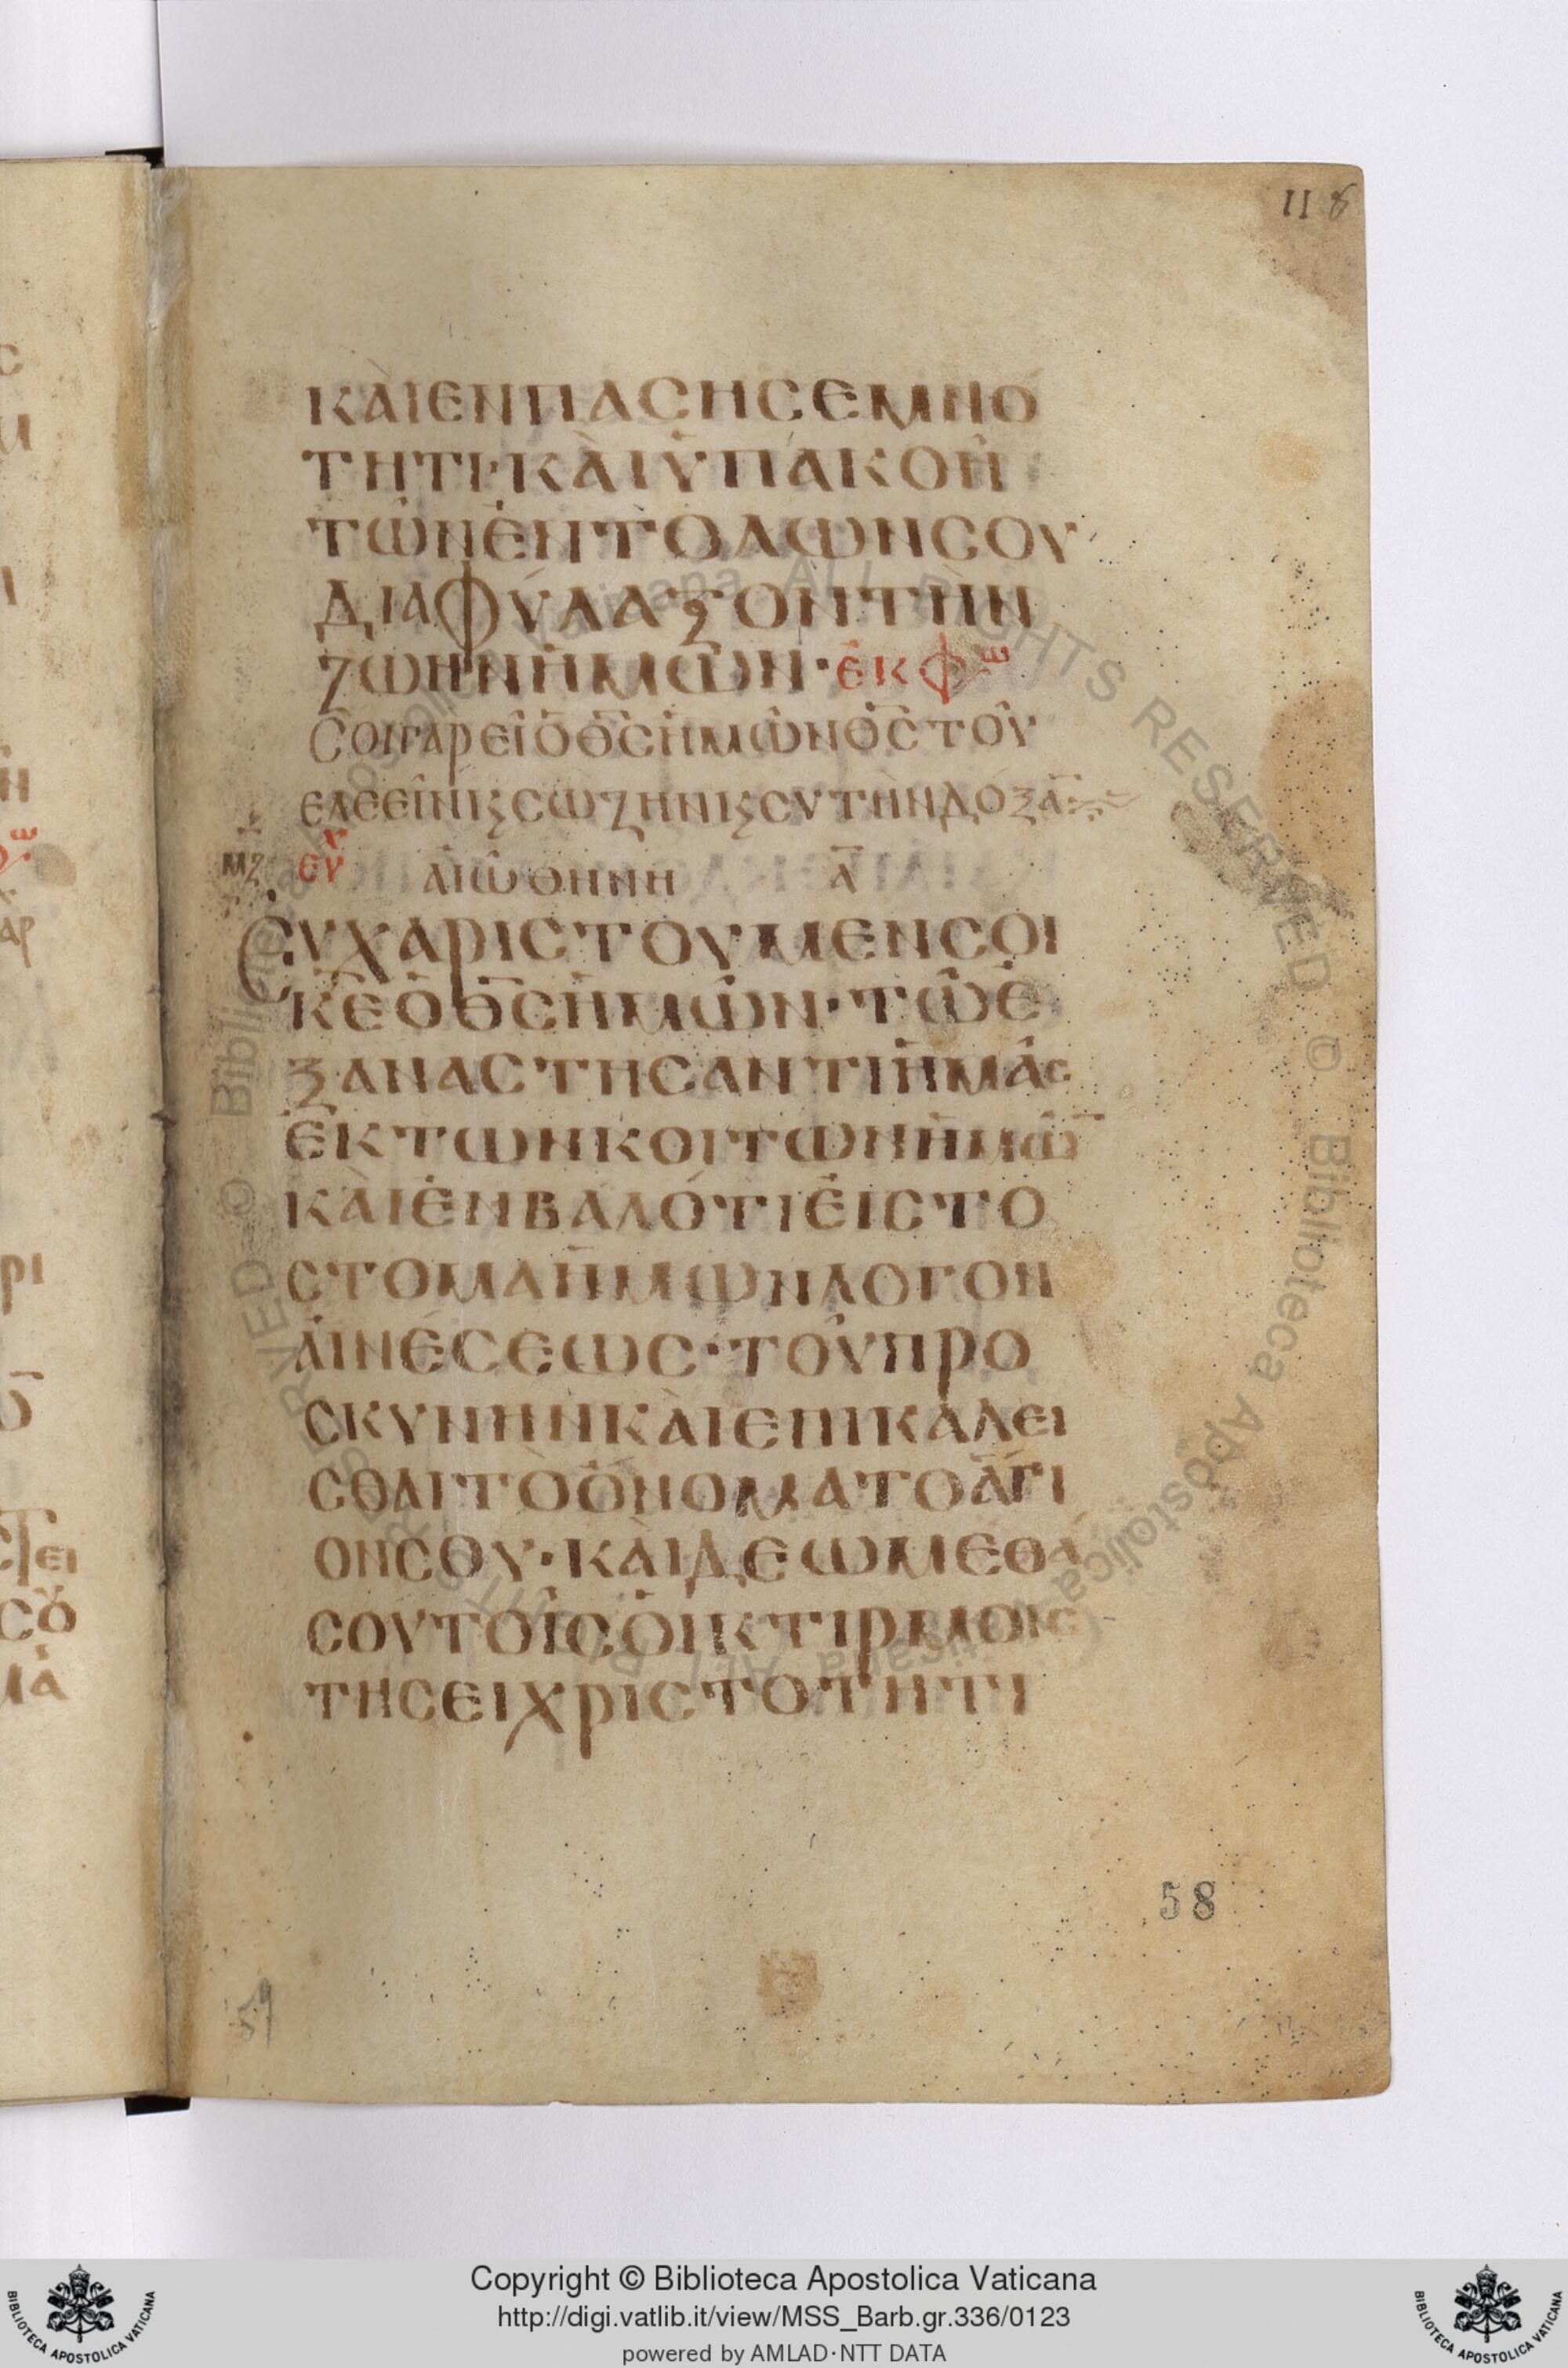 118
ΚΑΙΕΝΠΑϹΗϹΕΜΝΟ
ΤΗΤΙ·ΚΑΙΥΠΑΚΟΗ
ΤΩΝΕΝΤΟΛΩΝϹΟΥ
ΔΙΑΦΥΛΑΞΟΝΤΗΝ
ΖΩΗΝΗΜΩΝ·ΕΚΦω
ϹΟΙΓΑΡΕΙΟΘ̅Ϲ̅ΗΜΩΝΟΘ̅Ϲ̅ΤΟΥ
ΕΛΕΕΙΝΚϚϹΩΖΗΝΚϚϹΥΤΗΝΔΟΞΑ̅
ΜΖ ΕΥΧ ΑΙΩΘΗΝΗ Α̅
ΕΥΧΑΡΙϹΤΟΥΜΕΝϹΟΙ
Κ̅Ε̅ΟΘ̅Ϲ̅ΗΜΩΝ·ΤΩΕ
ΞΑΝΑϹΤΗϹΑΝΤΙΗΜΑϹ
ΕΚΤΩΝΚΟΙΤΩΝΗΜΩ̅
ΚΑΙΕΝΒΑΛΟΤΙΕΙϹΤΟ
ϹΤΟΜΑΗΜΩΝΛΟΓΟΝ
ΑΙΝΕϹΕΩϹ·ΤΟΥΠΡΟ
ϹΚΥΝΗΝΚΑΙΕΠΙΚΑΛΕΙ
ϹΘΑΙΤΟΟΝΟΜΑΤΟΑΓΙ
ΟΝϹΟΥ·ΚΑΙΔΕΩΜΕΘΑ
ϹΟΥΤΟΙϹΟΙΚΤΙΡΜΟΙϹ
ΤΗϹΕΙΧΡΙϹΤΟΤΗΤΙ
58
Copyright © Biblioteca Apostolica Vaticana
http://digi.vatlib.it/view/MSS_Barb.gr.336/0123
powered by AMLAD·NTT DATA